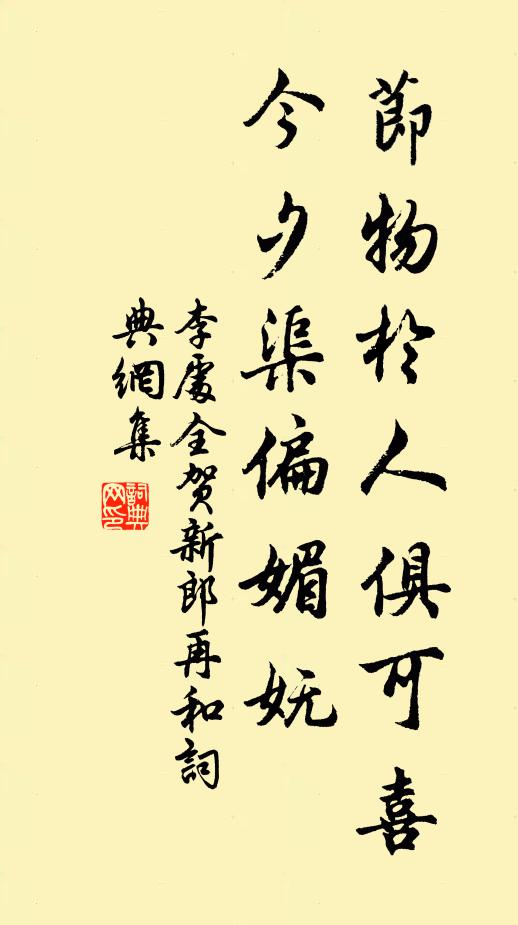 節物於人俱可喜
今夕渠偏媚妩
李處全賀新郎再和詞
典網集
詞典網印